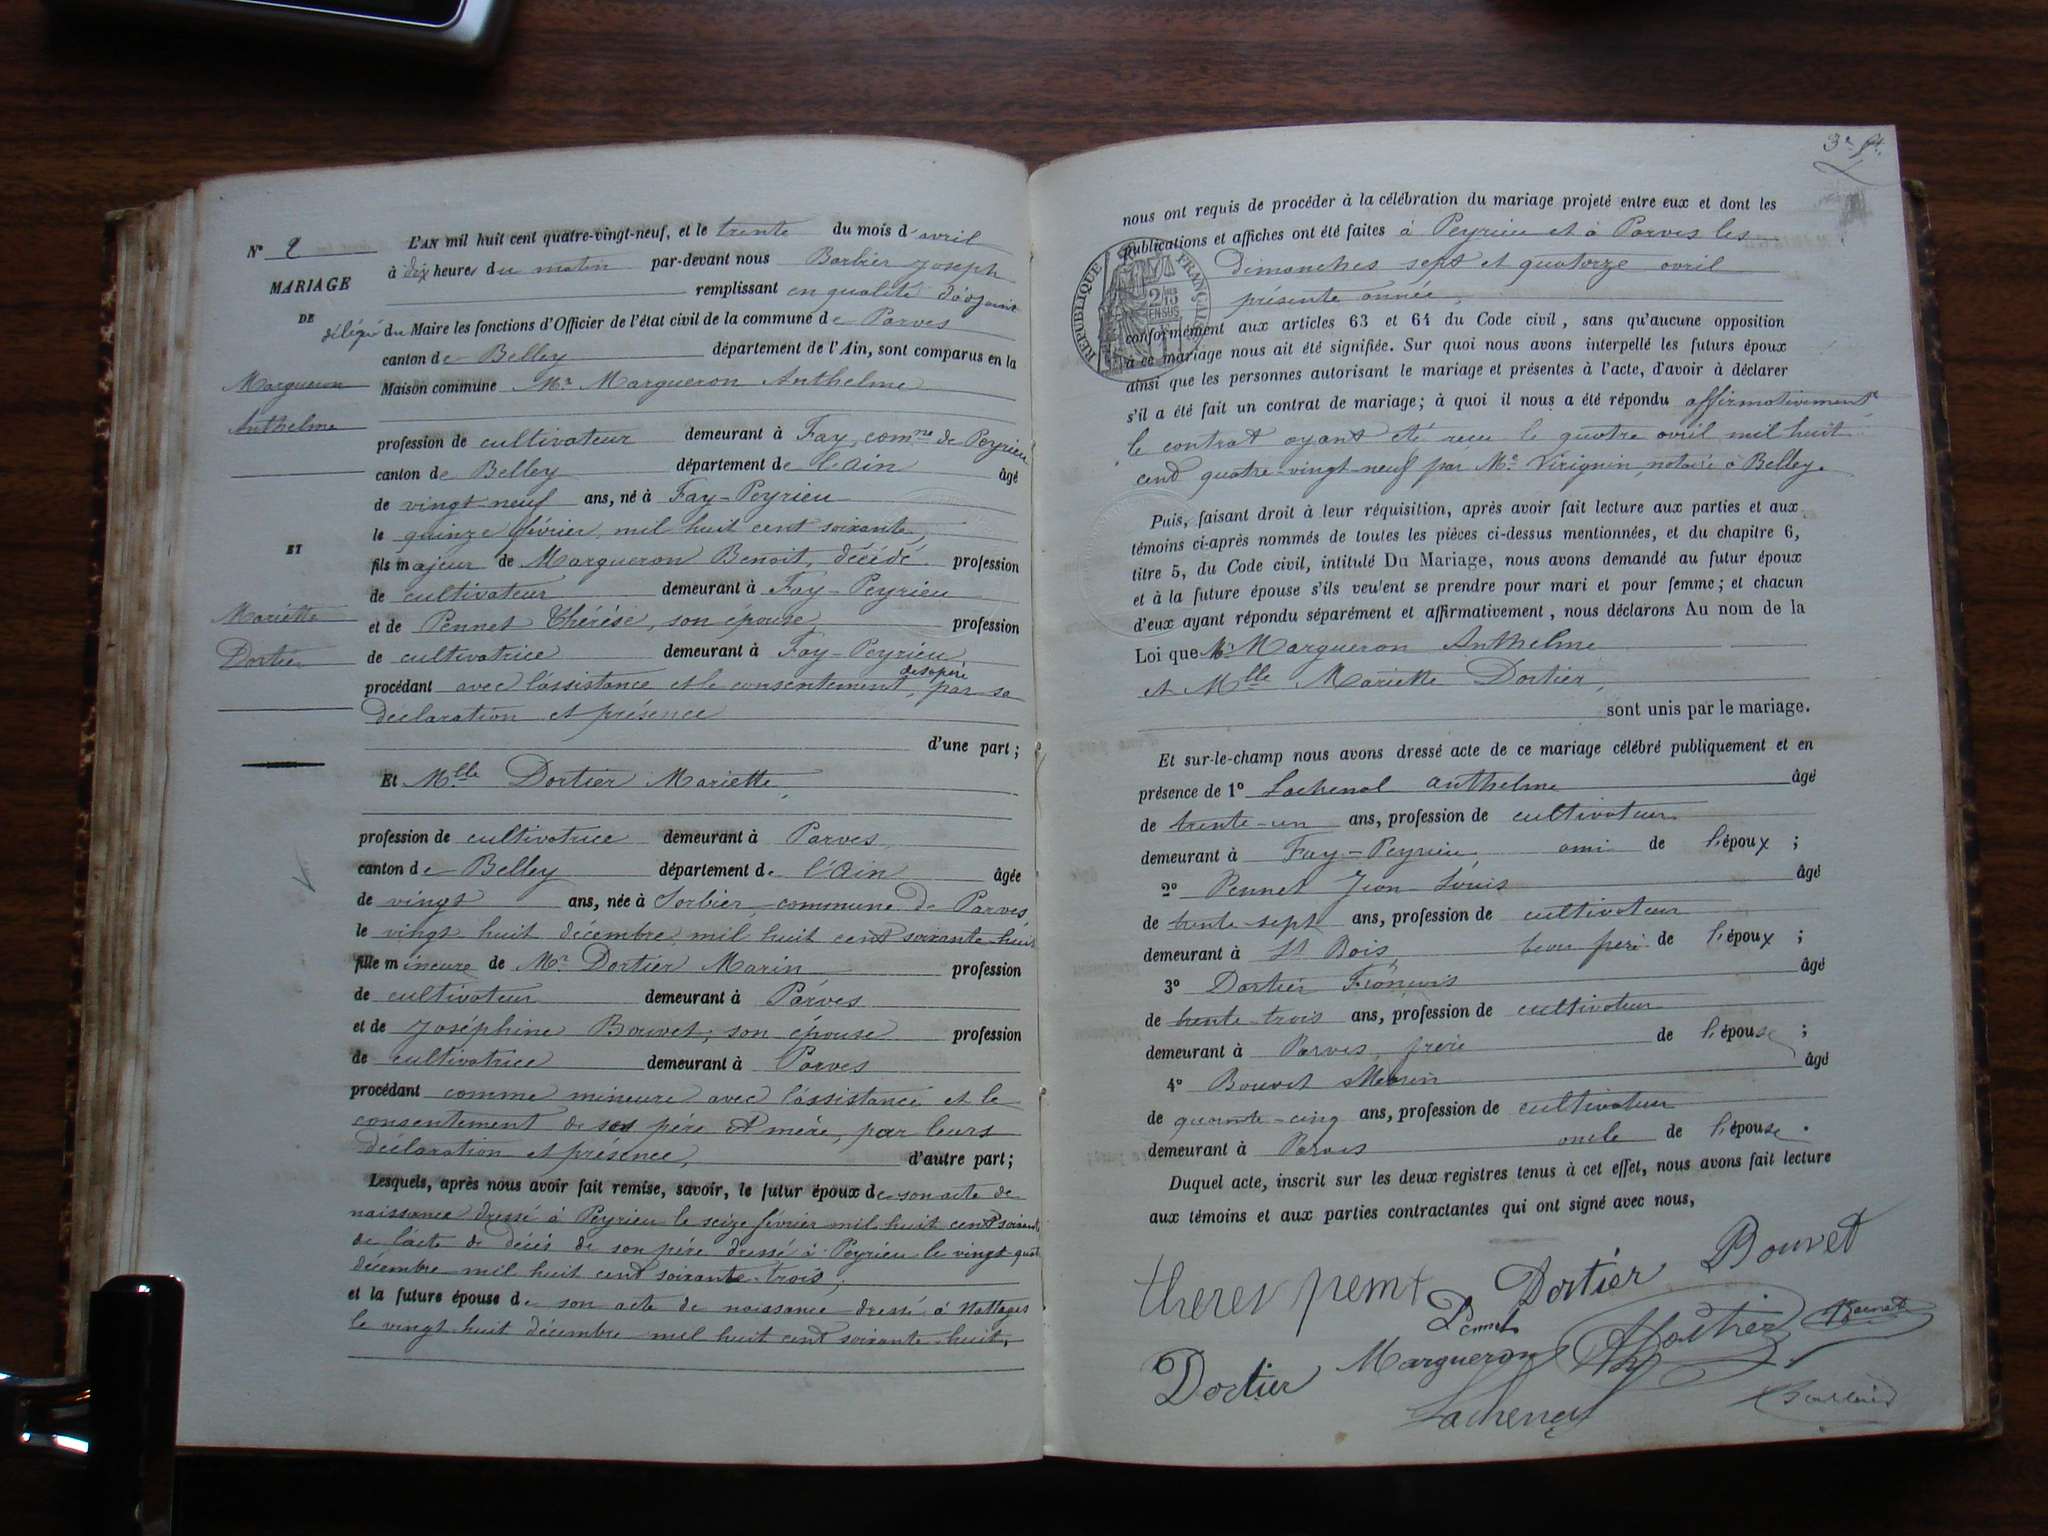 N° 2
MARIAGE
DE
Margueron
Anthelme
ET
Mariette
Dortier
L'AN mil huit cent quatre-vingt-neuf, et le trente du mois d'avril
à dix heures du matin par-devant nous Barbier Joseph
remplissant en qualité d'adjoint
délégué du Maire les fonctions d'Officier de l'état civil de la commune de Parves
canton de Belley département de l'Ain, sont comparus en la
Maison commune Mr Margueron Anthelme
profession de cultivateur demeurant à Fay, comne de Peyrieu
canton de Belley département de l'Ain âgé
de vingt-neuf ans, né à Fay-Peyrieu
le quinze février mil huit cent soixante,
fils majeur de Margueron Benoit, décédé profession
de cultivateur demeurant à Fay-Peyrieu
et de Pennet Thérèse, son épouse profession
de cultivatrice demeurant à Fay-Peyrieu,
procédant avec l'assistance et le consentement, par sa
déclaration et présence
d'une part ;
Et Mlle Dortier Mariette,
profession de cultivatrice demeurant à Parves,
canton de Belley département de l'Ain âgée
de vingt ans, née à Sorbier, commune de Parves
le vingt huit décembre mil huit cent soixante-huit
fille mineure de Mr Dortier Marin profession
de cultivateur demeurant à Parves
et de Joséphine Bouvet, son épouse profession
de cultivatrice demeurant à Parves
procédant comme mineure avec l'assistance et le
consentement de ses père et mère, par leurs
déclaration et présence, d'autre part ;
Lesquels, après nous avoir fait remise, savoir, le futur époux de son acte de
naissance dressé à Peyrieu le seize février mil huit cent soixante
de l'acte de décès de son père dressé à Peyrieu le vingt-quat
décembre mil huit cent soixante-trois,
et la future épouse de son acte de naissance dressé à Nattages
le vingt huit décembre mil huit cent soixante-huit,
3e ft.
nous ont requis de procéder à la célébration du mariage projeté entre eux et dont les
publications et affiches ont été faites à Peyrieu et à Parves les
dimanches sept et quatorze avril
présente année,
RÉPUBLIQUE FRANÇAISE
conformément aux articles 63 et 64 du Code civil, sans qu'aucune opposition
à ce mariage nous ait été signifiée. Sur quoi nous avons interpellé les futurs époux
ainsi que les personnes autorisant le mariage et présentes à l'acte, d'avoir à déclarer
s'il a été fait un contrat de mariage ; à quoi il nous a été répondu affirmativement
le contrat ayant été reçu le quatre avril mil huit
cent quatre-vingt-neuf par Me Virignin, notaire à Belley.
Puis, faisant droit à leur réquisition, après avoir fait lecture aux parties et aux
témoins ci-après nommés de toutes les pièces ci-dessus mentionnées, et du chapitre 6,
titre 5, du Code civil, intitulé Du Mariage, nous avons demandé au futur époux
et à la future épouse s'ils veulent se prendre pour mari et pour femme ; et chacun
d'eux ayant répondu séparément et affirmativement, nous déclarons Au nom de la
Loi que Mr Margueron Anthelme
et Mlle Mariette Dortier,
sont unis par le mariage.
Et sur-le-champ nous avons dressé acte de ce mariage célébré publiquement et en
présence de 1° Lachenal Anthelme âgé
de trente-un ans, profession de cultivateur
demeurant à Fay-Peyrieu, ami de l'époux ;
2° Pennet Jean-Louis âgé
de trente-sept ans, profession de cultivateur
demeurant à St Bois, beau père de l'époux ;
3° Dortier François âgé
de trente-trois ans, profession de cultivateur
demeurant à Parves, frère de l'épouse ;
4° Bouvet Marin âgé
de quarante-cinq ans, profession de cultivateur
demeurant à Parves oncle de l'épouse.
Duquel acte, inscrit sur les deux registres tenus à cet effet, nous avons fait lecture
aux témoins et aux parties contractantes qui ont signé avec nous,
Dortier Bouvet
Pennet
Dortier Margueron
Lachenal